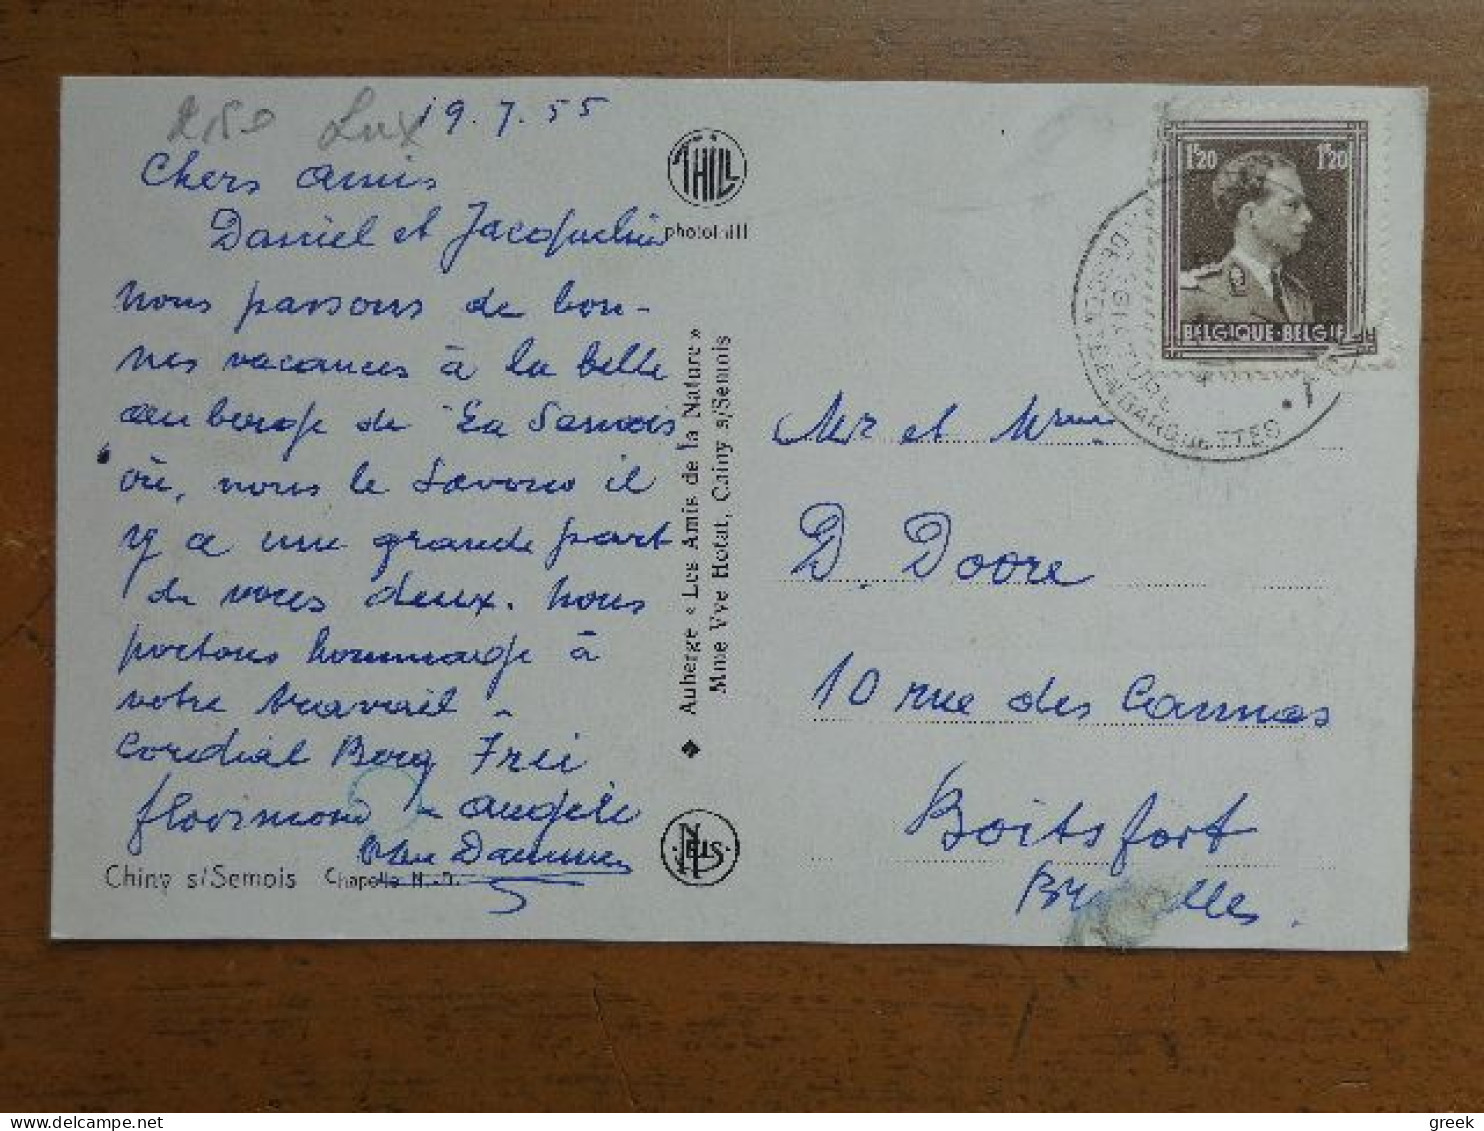 Lux
19.7.55
Chers amis
Daniel et Jacqueline
nous passons de bon-
nes vacances à la belle
auberge de La Semois
où, nous le savons il
y a une grande part
de vous deux. Nous
portons hommage à
votre travail -
Cordial
florimond - angèle
Chiny s/Semois Chapelle N.-D.
THILL
photothill
Auberge « Les Amis de la Nature »
Mme Vve Hotat, Chiny s/Semois
NELS
1F20 1F20
BELGIQUE-BELGIE
Mr et Mme
D. Doore
10 rue des Cannas
Boitsfort
Bruxelles.
© Delcampe.net
greek